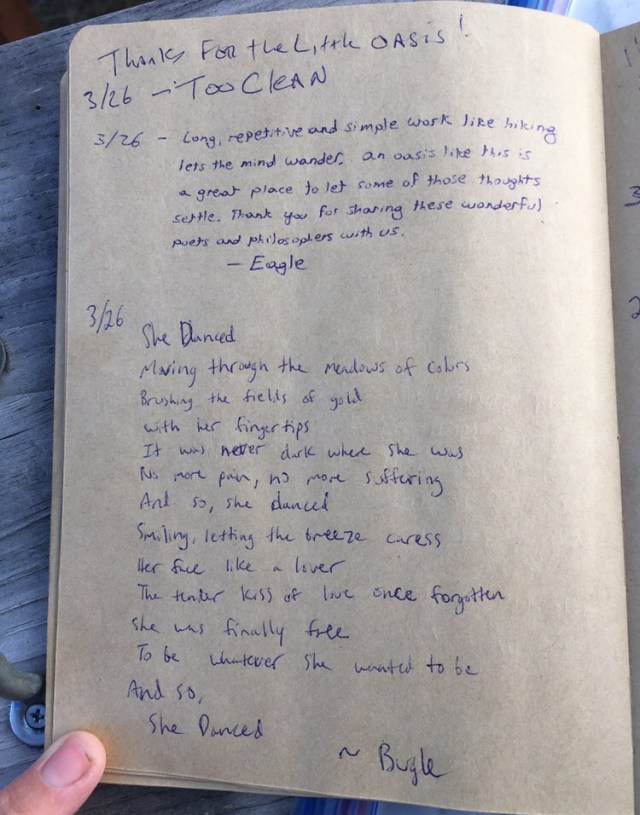 Thanks For the Little OASIS!
3/26 – Too Clean
3/26 – Long, repetitive and simple work like hiking
lets the mind wander. an oasis like this is
a great place to let some of those thoughts
settle. Thank you for sharing these wonderful
poets and philosophers with us.
– Eagle
3/26
She Danced
Moving through the meadows of colors
Brushing the fields of gold
with her fingertips
It was never dark where she was
No more pain, no more suffering
And so, she danced
Smiling, letting the breeze caress
Her face like a lover
The tender kiss of love once forgotten
She was finally free
To be whatever she wanted to be
And so,
She Danced
~ Bugle